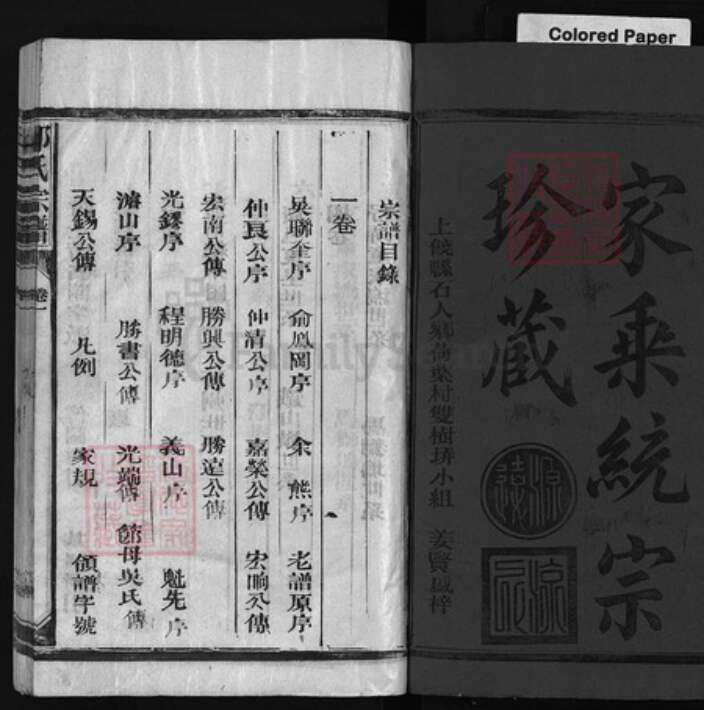 Colored Paper
家乘統宗
珍藏
上饒縣石人鄉
村雙樹
小組 姜賢
梓
源遠
宗譜目錄
一卷
吳聯奎序 俞鳳岡序 余熊序 老譜原序
仲良公序 仲清公序 嘉榮公傳 宏响公傳
宏南公傳 勝興公傳 勝逵公傳
光鏐序 程明德序 義山序 魁先序
濬山序 勝書公傳 光端傳 節母吳氏傳
天錫公傳 凡例 家規 領譜字號
氏宗譜 卷一